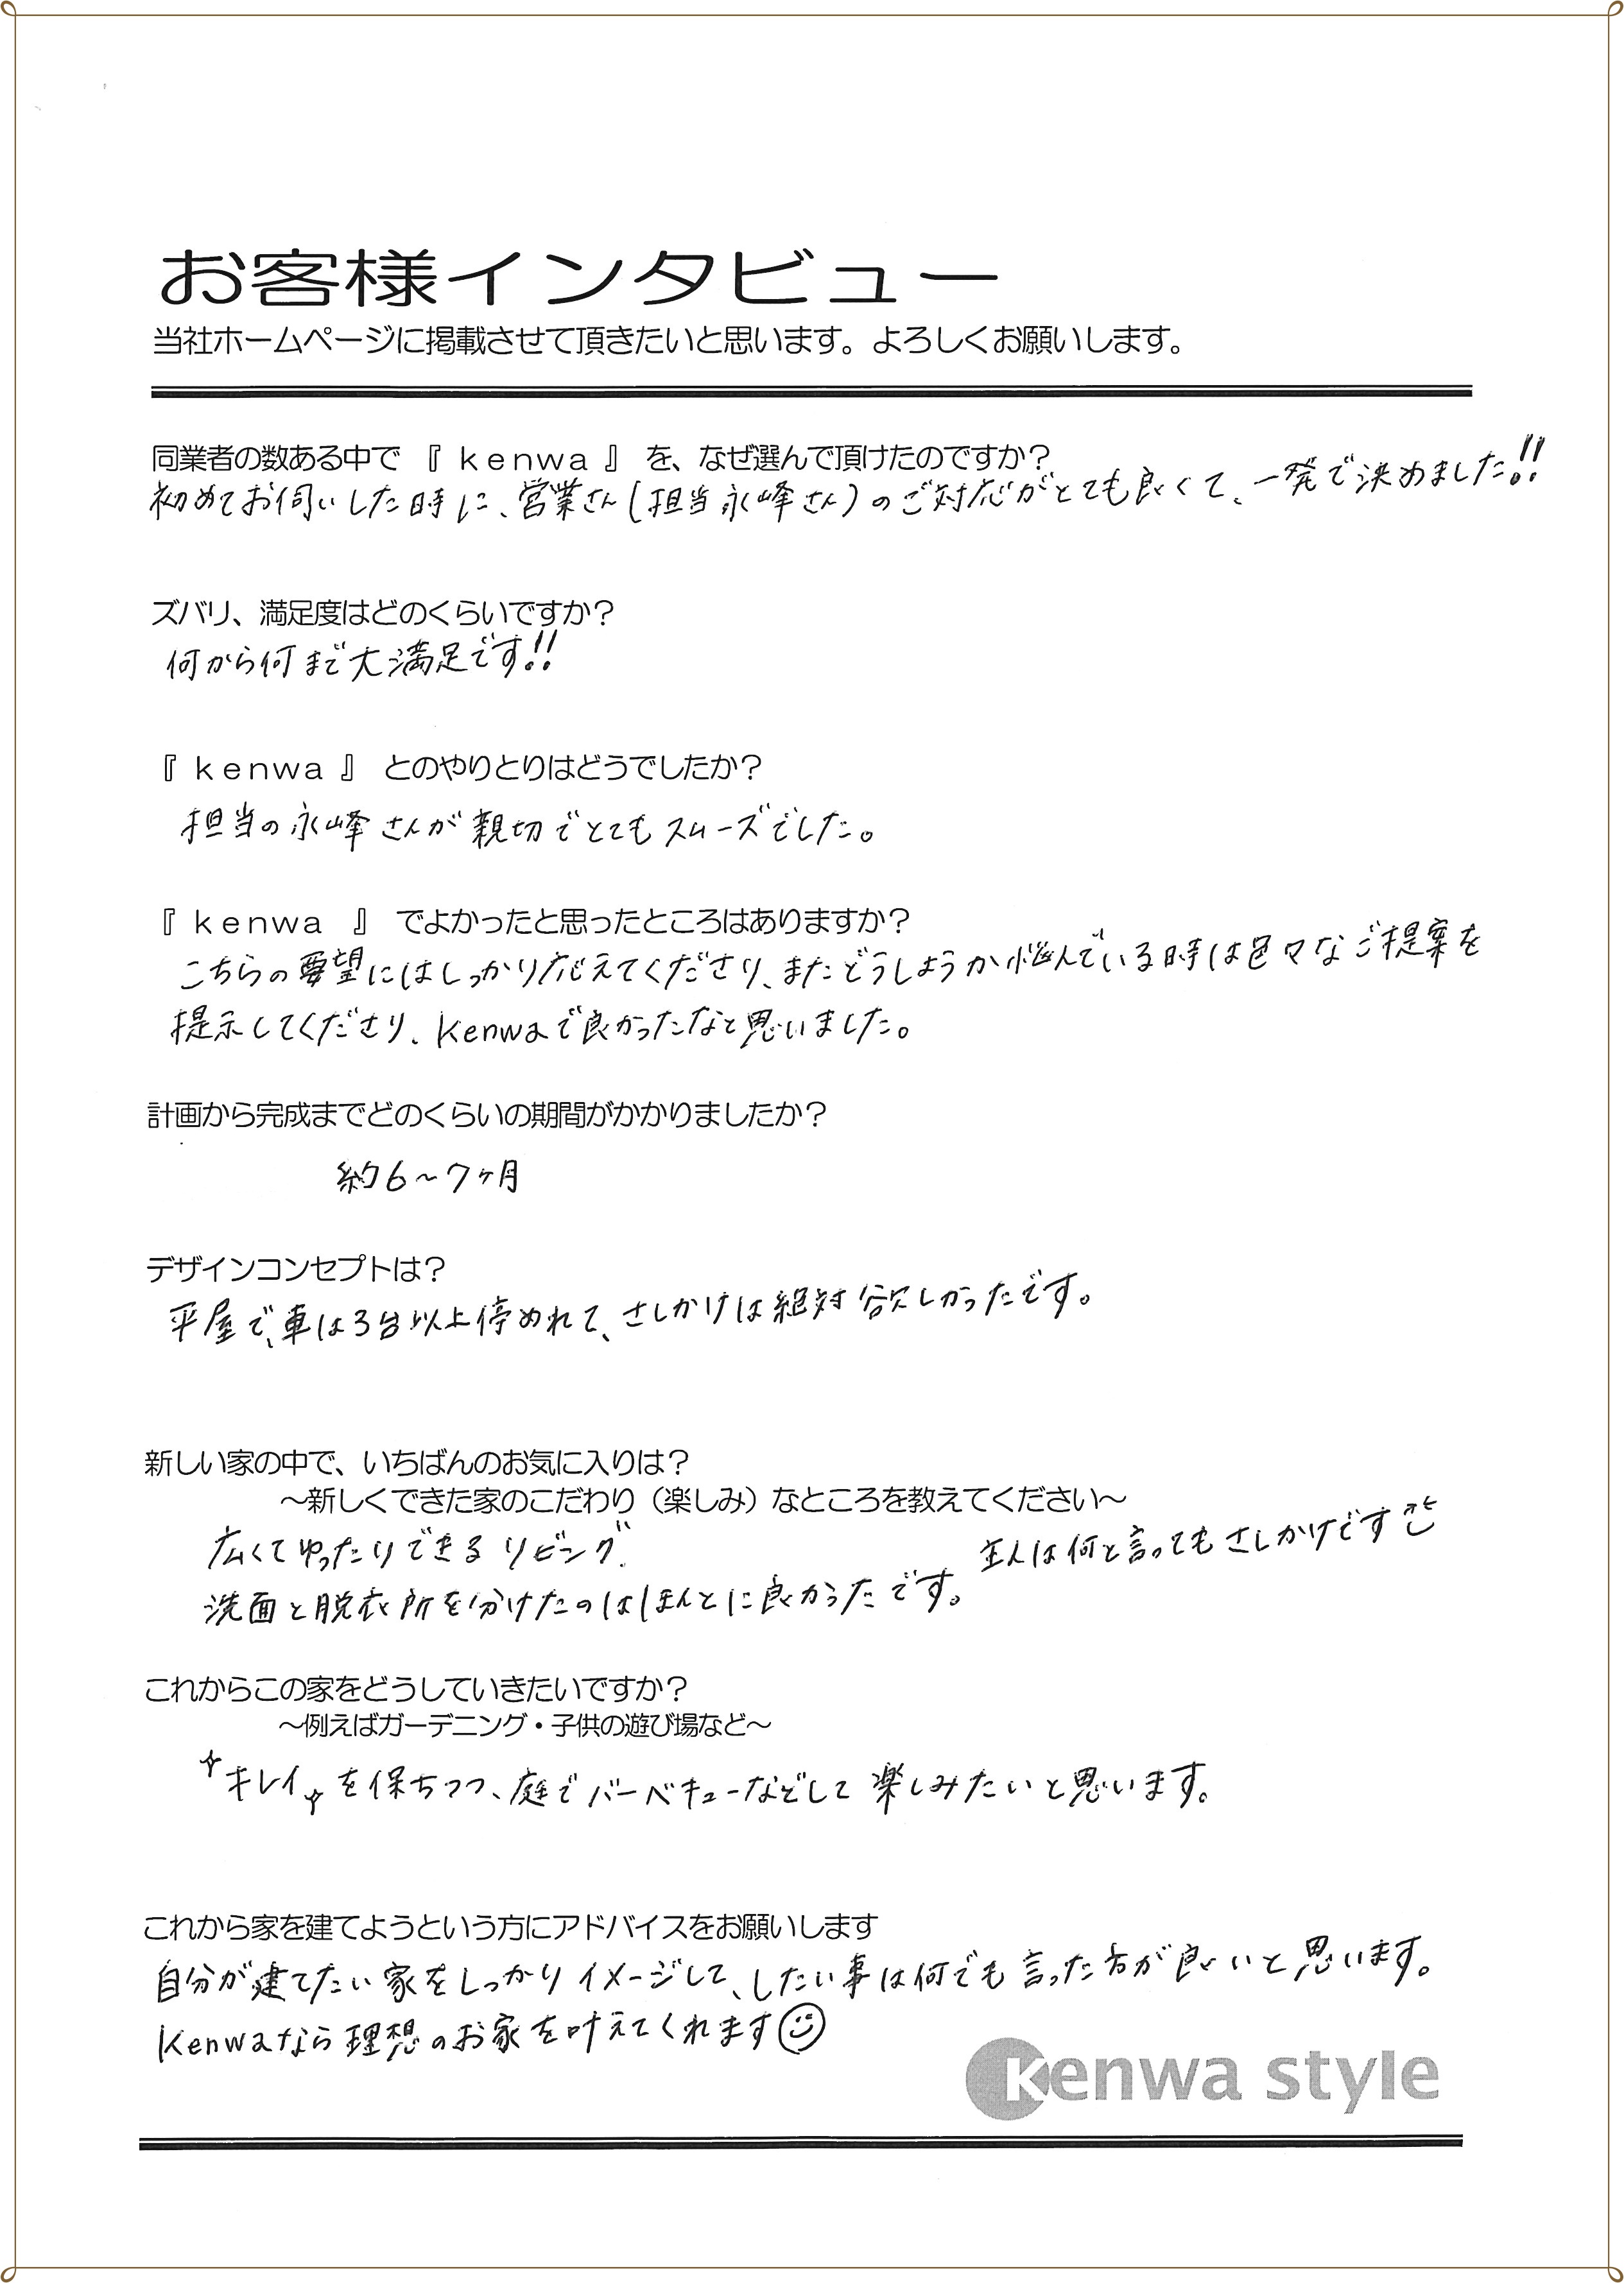 お客様インタビュー
当社ホームページに掲載させて頂きたいと思います。よろしくお願いします。
同業者の数ある中で 『 kenwa 』 を、なぜ選んで頂けたのですか？
初めてお伺いした時に、営業さん（担当永峰さん）のご対応がとても良くて、一発で決めました!!
ズバリ、満足度はどのくらいですか？
何から何まで大満足です!!
『 kenwa 』 とのやりとりはどうでしたか？
担当の永峰さんが親切でとてもスムーズでした。
『 kenwa 』 でよかったと思ったところはありますか？
こちらの要望にはしっかり応えてくださり、またどうしようか悩んでいる時は色々なご提案を
提示してくださり、kenwaで良かったなと思いました。
計画から完成までどのくらいの期間がかかりましたか？
約6～7ヶ月
デザインコンセプトは？
平屋で、車は3台以上停めれて、さしかけは絶対欲しかったです。
新しい家の中で、いちばんのお気に入りは？
～新しくできた家のこだわり（楽しみ）なところを教えてください～
広くてゆったりできるリビング。
洗面と脱衣所を分けたのはほんとに良かったです。
主人は何と言ってもさしかけです
これからこの家をどうしていきたいですか？
～例えばガーデニング・子供の遊び場など～
キレイを保ちつつ、庭でバーベキューなどして楽しみたいと思います。
これから家を建てようという方にアドバイスをお願いします
自分が建てたい家をしっかりイメージして、したい事は何でも言った方が良いと思います。
kenwaなら理想のお家を叶えてくれます
kenwa style